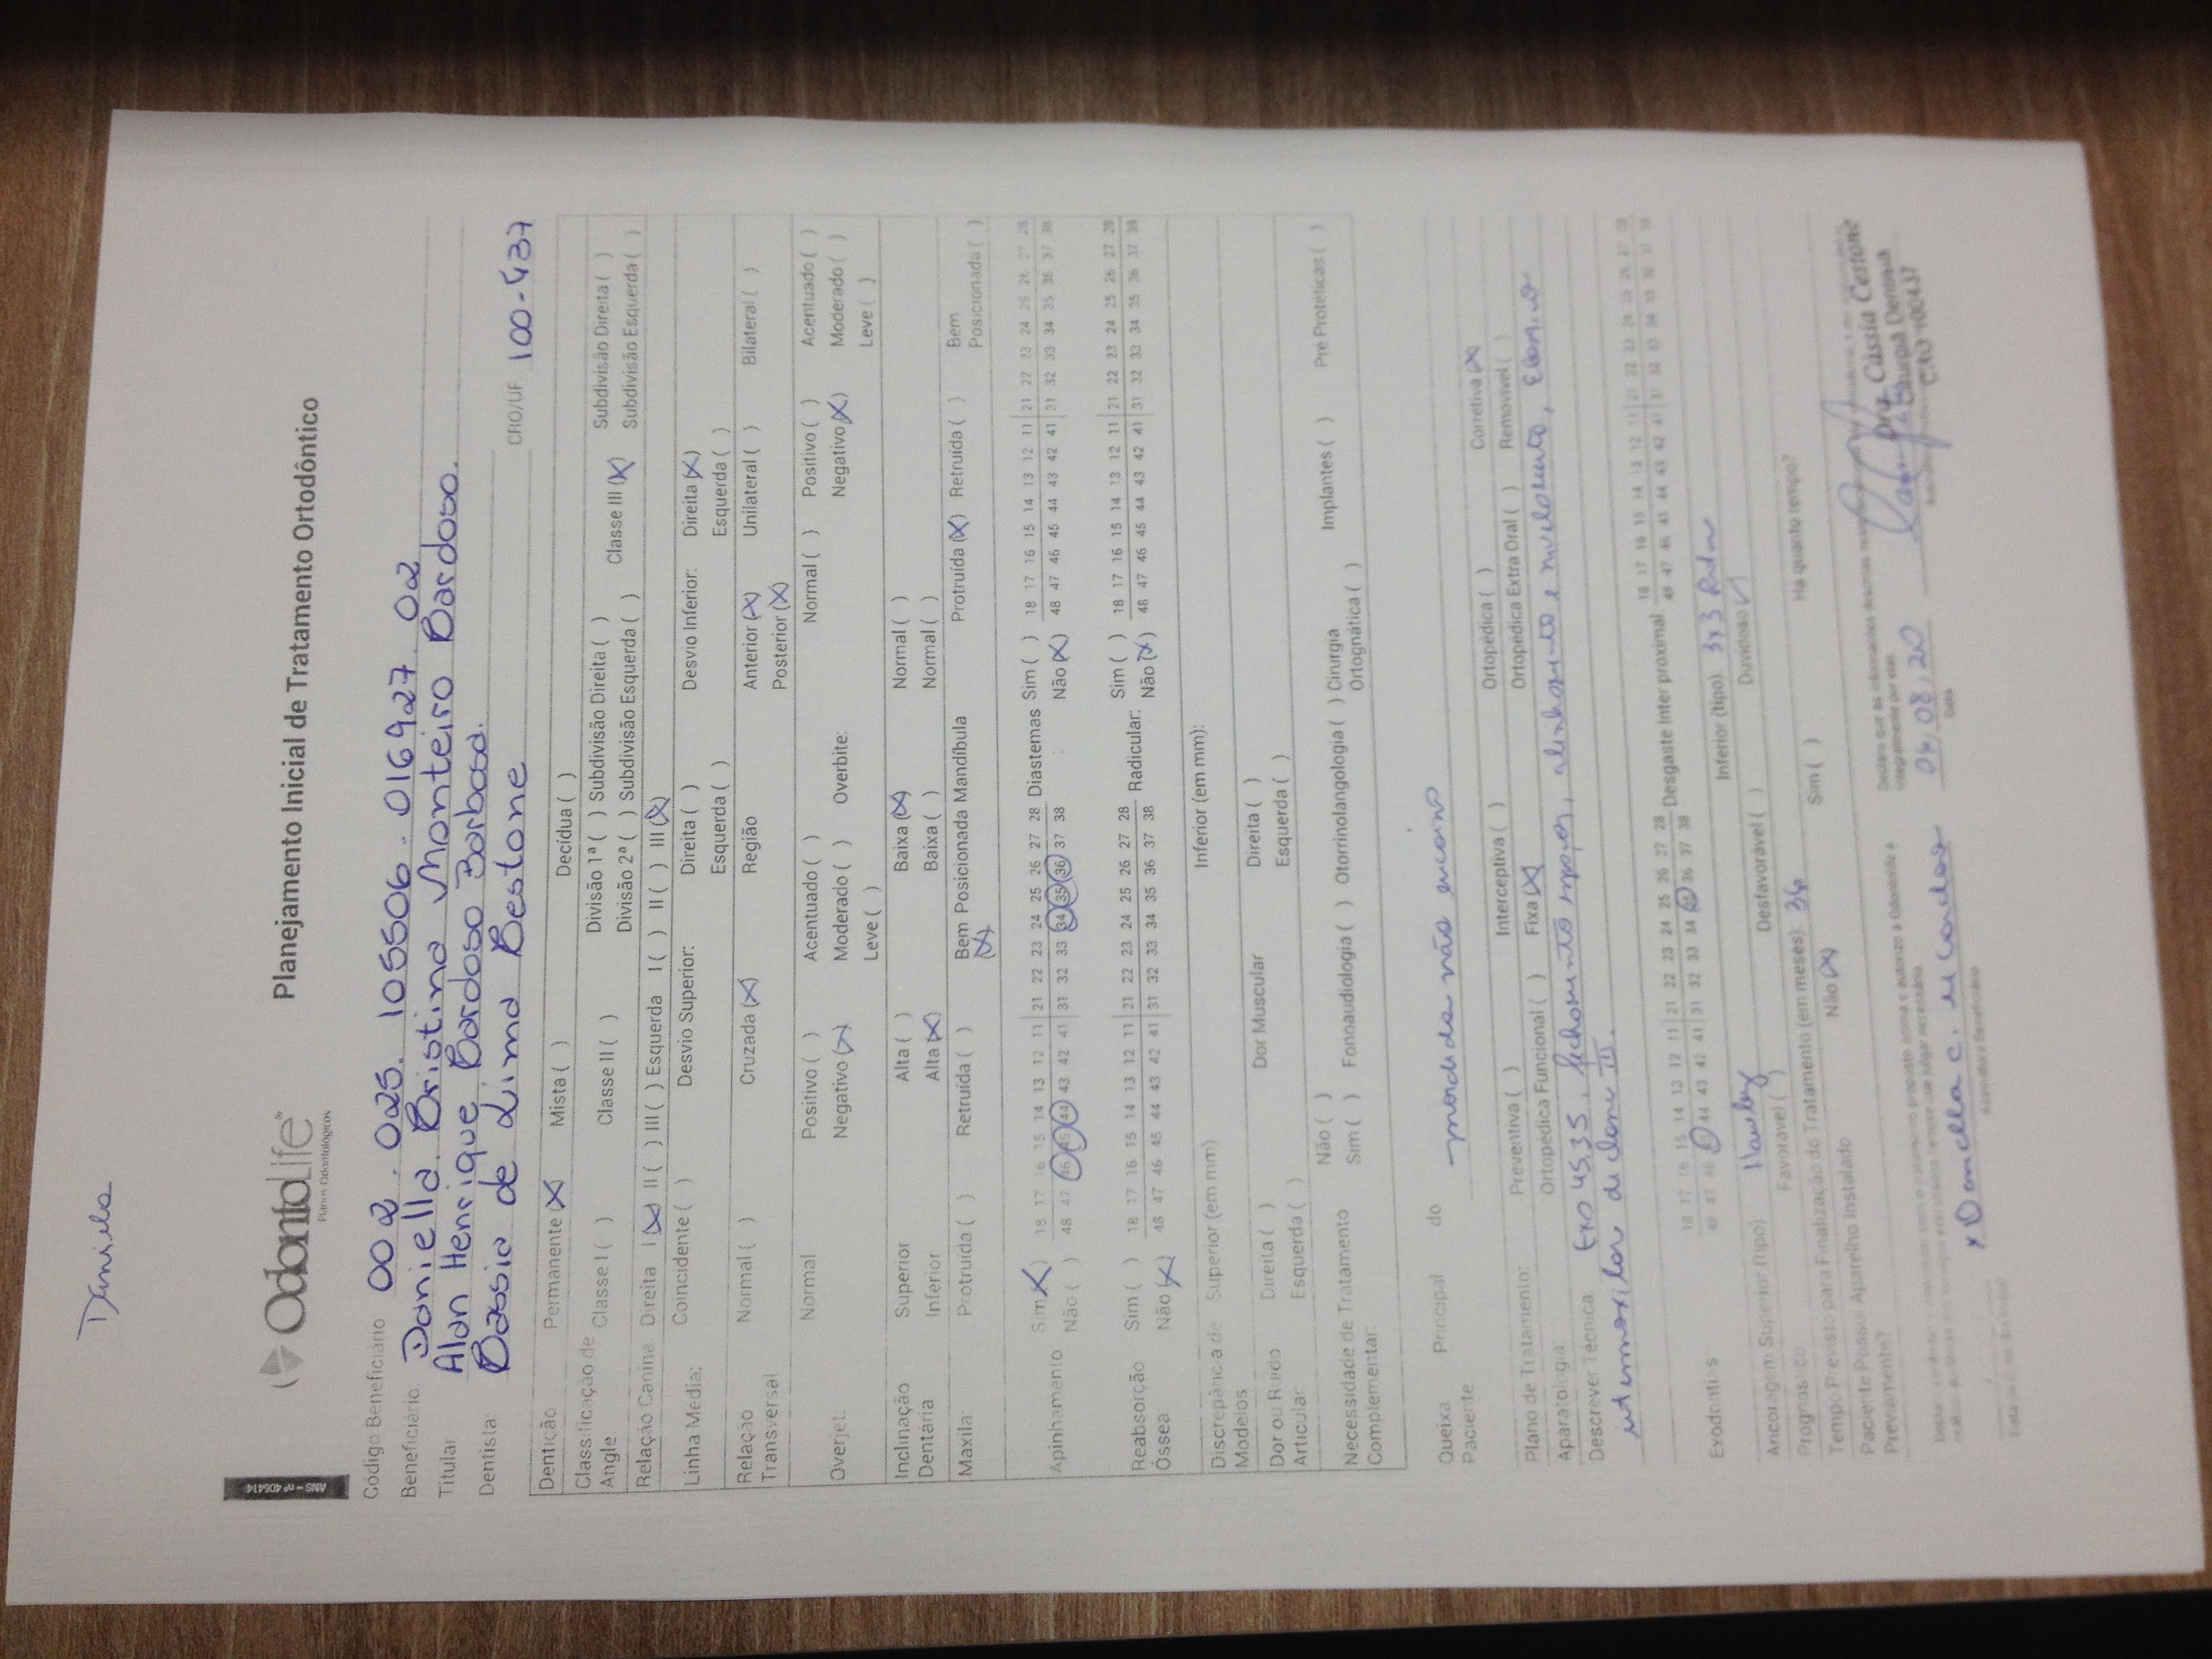 Daniela
ANS - nº 406414
OdontoLife
Planos Odontológicos
Planejamento Inicial de Tratamento Ortodôntico
Código Beneficiário 002.025.105506.016927.02
Beneficiário: Daniella Cristina Monteiro Cardoso.
Titular Alan Henrique Cardoso Barbosa.
Dentista: Cassia de Lima Cestone CRO/UF 100-437
Dentição Permanente (X) Mista ( ) Decídua ( )
Classificação de Angle Classe I ( ) Classe II ( ) Divisão 1ª ( ) Subdivisão Direita ( ) Classe III (X) Subdivisão Direita ( )
Divisão 2ª ( ) Subdivisão Esquerda ( ) Subdivisão Esquerda ( )
Relação Canina: Direita I (X) II ( ) III ( ) Esquerda I ( ) II ( ) III (X)
Linha Média: Coincidente ( ) Desvio Superior: Direita ( ) Desvio Inferior: Direita (X)
Esquerda ( ) Esquerda ( )
Relação Transversal Normal ( ) Cruzada (X) Região Anterior (X) Unilateral ( ) Bilateral ( )
Posterior (X)
Overjet: Normal Positivo ( ) Acentuado ( ) Overbite: Normal ( ) Positivo ( ) Acentuado ( )
Negativo (X) Moderado ( ) Negativo (X) Moderado ( )
Leve ( ) Leve ( )
Inclinação Dentária Superior Alta ( ) Baixa (X) Normal ( )
Inferior Alta (X) Baixa ( ) Normal ( )
Maxila: Protruída ( ) Retruída ( ) Bem Posicionada (X) Mandíbula Protruída (X) Retruída ( ) Bem Posicionada ( )
Apinhamento Sim (X) 18 17 16 15 14 13 12 11 | 21 22 23 24 25 26 27 28 Diastemas Sim ( ) 18 17 16 15 14 13 12 11 | 21 22 23 24 25 26 27 28
Não ( ) 48 47 46 45 44 43 42 41 | 31 32 33 34 35 36 37 38 : Não (X) 48 47 46 45 44 43 42 41 | 31 32 33 34 35 36 37 38
Reabsorção Óssea: Sim ( ) 18 17 16 15 14 13 12 11 | 21 22 23 24 25 26 27 28 Radicular: Sim ( ) 18 17 16 15 14 13 12 11 | 21 22 23 24 25 26 27 28
Não (X) 48 47 46 45 44 43 42 41 | 31 32 33 34 35 36 37 38 Não (X) 48 47 46 45 44 43 42 41 | 31 32 33 34 35 36 37 38
Discrepância de Modelos Superior (em mm) Inferior (em mm):
Dor ou Ruído Articular: Direita ( ) Dor Muscular Direita ( )
Esquerda ( ) Esquerda ( )
Necessidade de Tratamento Complementar: Não ( )
Sim ( ) Fonoaudiologia ( ) Otorrinolangologia ( ) Cirurgia Ortognática ( ) Implantes ( ) Pré Protéticas ( )
Queixa Principal do Paciente mordida não encaixa
Plano de Tratamento: Preventiva ( ) Interceptiva ( ) Ortopédica ( ) Corretiva (X)
Aparatologia: Ortopédica Funcional ( ) Fixa (X) Ortopédica Extra Oral ( ) Removível ( )
Descrever Técnica Exo 45,35, fechamento espaço, alinhamento e nivelamento,
intermaxilar de classe III.
Exodontias 18 17 16 15 14 13 12 11 | 21 22 23 24 25 26 27 28 Desgaste Inter proximal 18 17 16 15 14 13 12 11 | 21 22 23 24 25 26 27 28
48 47 46 45 44 43 42 41 | 31 32 33 34 35 36 37 38 48 47 46 45 44 43 42 41 | 31 32 33 34 35 36 37 38
Ancoragem Superior (tipo) Hawley Inferior (tipo): 3x3
Prognóstico Favorável ( ) Desfavorável ( ) Duvidoso (
Tempo Previsto para Finalização do Tratamento (em meses): 36
Paciente Possui Aparelho Instalado Previamente? Não (X) Sim ( ) Há quanto tempo?
Declaro que as informações descritas
integralmente por elas.
04, 08, 20
Data
Dra. Cássia Cestone
Cirurgiã Dentista
CRO 100437
Assinatura Beneficiário